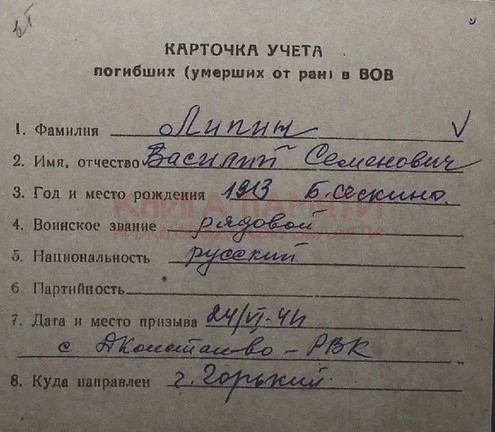 КАРТОЧКА УЧЕТА
погибших (умерших от ран) в ВОВ
1. Фамилия Липин
2. Имя, отчество Василий Семенович
3. Год и место рождения 1913 Б. Сескино.
КНИГА ПАМЯТИ
4. Воинское звание рядовой
5. Национальность русский
6. Партийность
7. Дата и место призыва 24/VI-41г
с Д Константово - РВК
8. Куда направлен г. Горький.